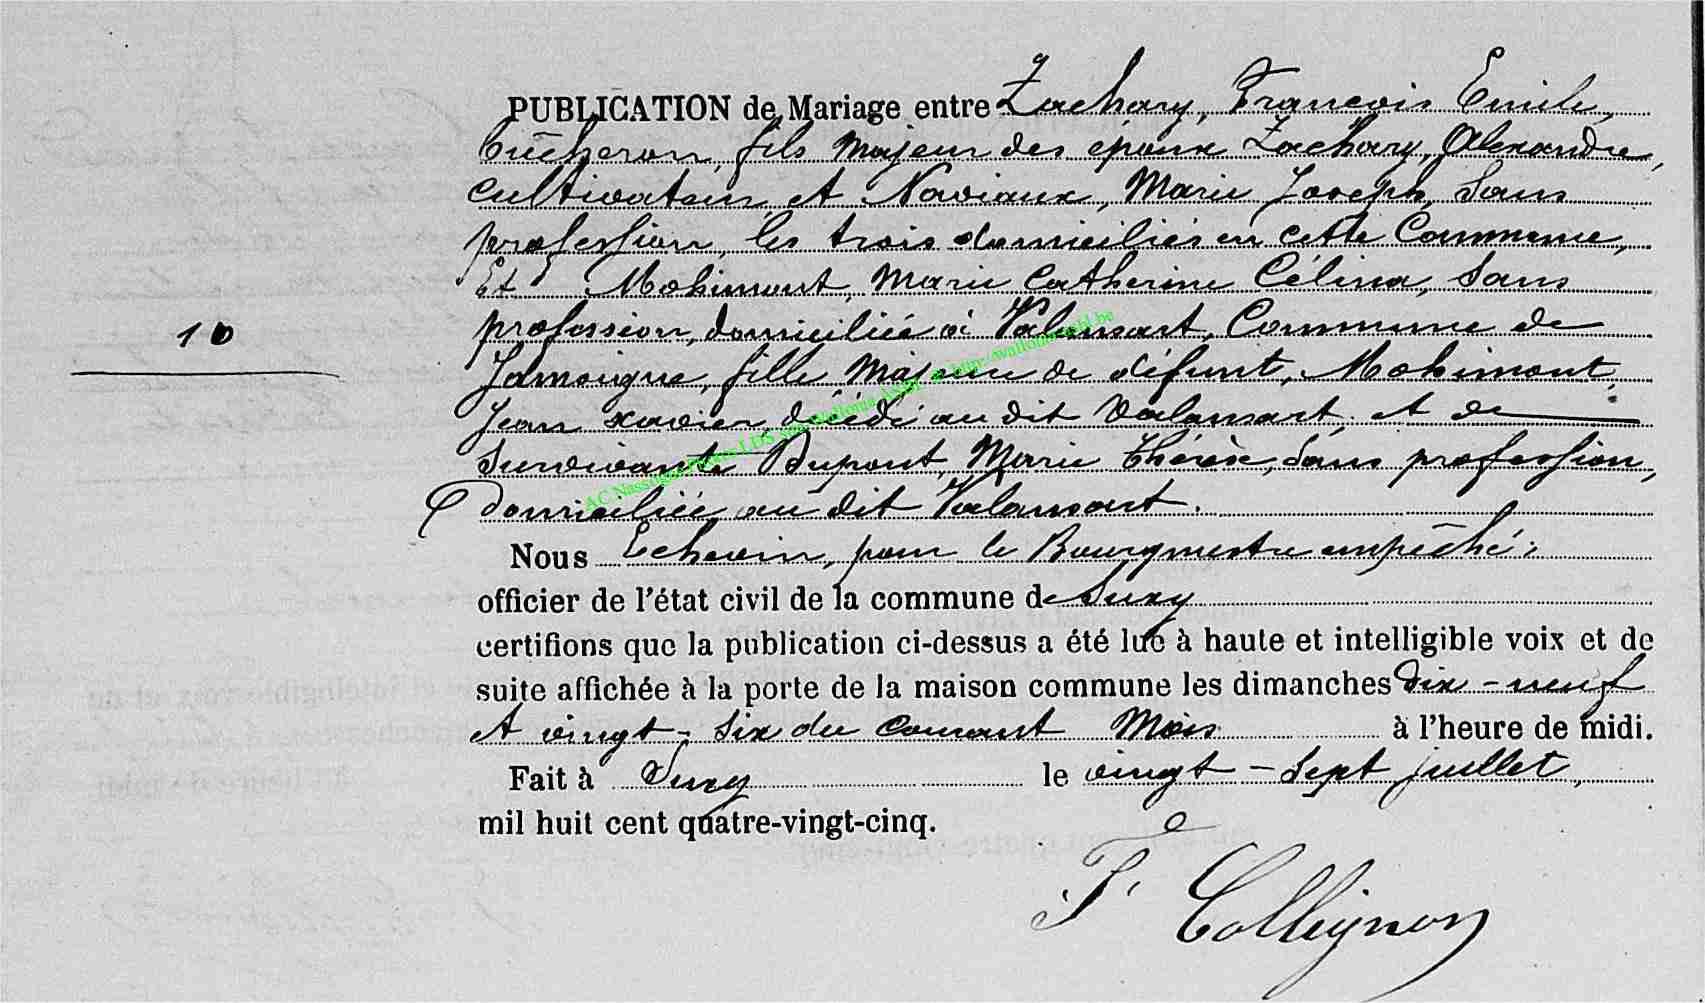 PUBLICATION de Mariage entre Zachary, François Emile,
bûcheron, fils majeur des époux Zachary, Alexandre,
cultivateur, et Noviaux, Marie Joseph, sans
profession, les trois domiciliés en cette Commune,
Et Mohimont, Marie Catherine Célina, sans
profession, domiciliée à Valansart, Commune de
10
Jamoigne, fille majeure de défunt, Mohimont,
Jean Xavier, décédé au dit Valansart, et de
survivante Dupont, Marie Thérèse, sans profession,
domiciliée au dit Valansart.
Nous Echevin, pour le Bourgmestre empêché,
officier de l'état civil de la commune de Suxy
certifions que la publication ci-dessus a été lue à haute et intelligible voix et de
suite affichée à la porte de la maison commune les dimanches dix-neuf
et vingt-six du courant mois à l'heure de midi.
Fait à Suxy le vingt-sept juillet,
mil huit cent quatre-vingt-cinq.
F. Collignon